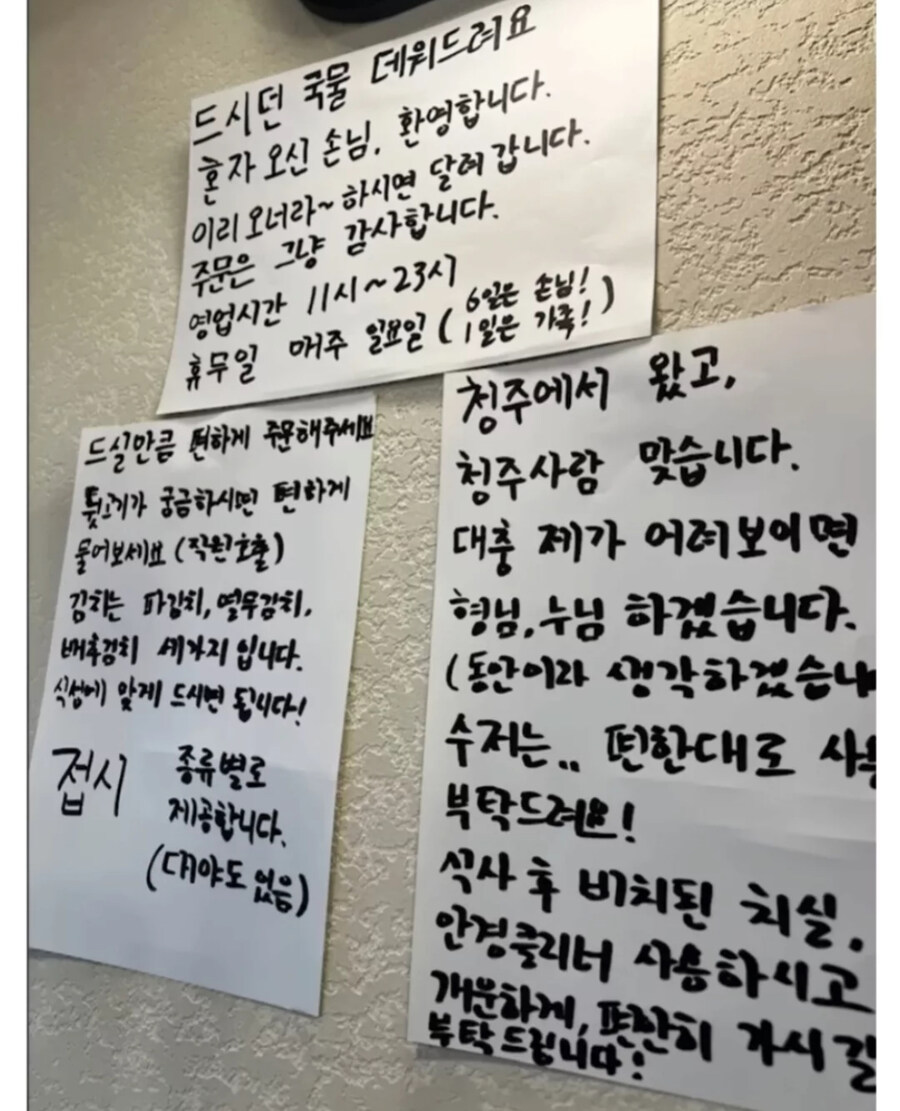 드시던 국물 데워드려요
혼자 오신 손님, 환영합니다.
이리 오너라~ 하시면 달려갑니다.
주문은 그냥 감사합니다.
영업시간 11시~23시
휴무일 매주 일요일 (6일은 손님!
1일은 가족!)
드실만큼 편하게 주문해주세요
뒷고기가 궁금하시면 편하게
물어보세요 (직원호출)
김치는 파김치, 열무김치,
배추김치 세가지 입니다.
식성에 맞게 드시면 됩니다!
접시 종류별로
제공합니다.
(대야도 있음)
청주에서 왔고,
청주사람 맞습니다.
대충 제가 어려보이면
형님, 누님 하겠습니다.
(동안이라 생각하겠습니
수저는.. 편한대로 사용
부탁드려요!
식사 후 비치된 치실,
안경클리너 사용하시고
개운하게, 편안히 가시길
부탁드립니다!